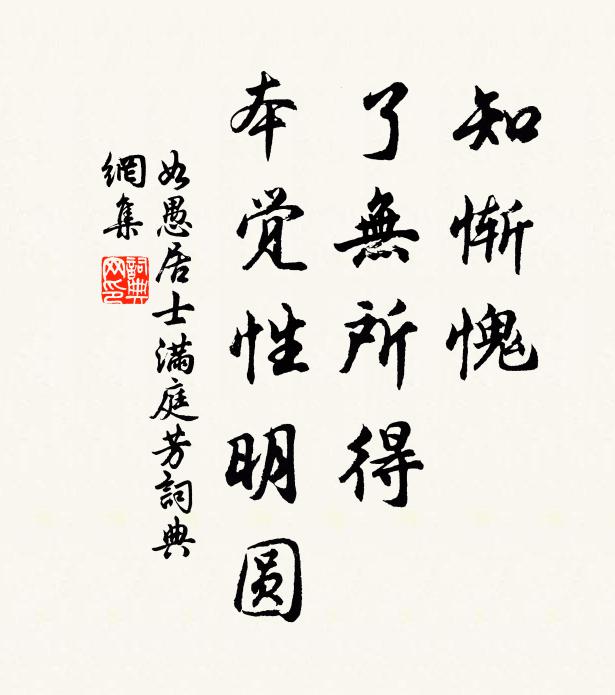 知慚愧
了無所得
本觉性明圆
如愚居士滿庭芳詞典
網集
詞典
网印